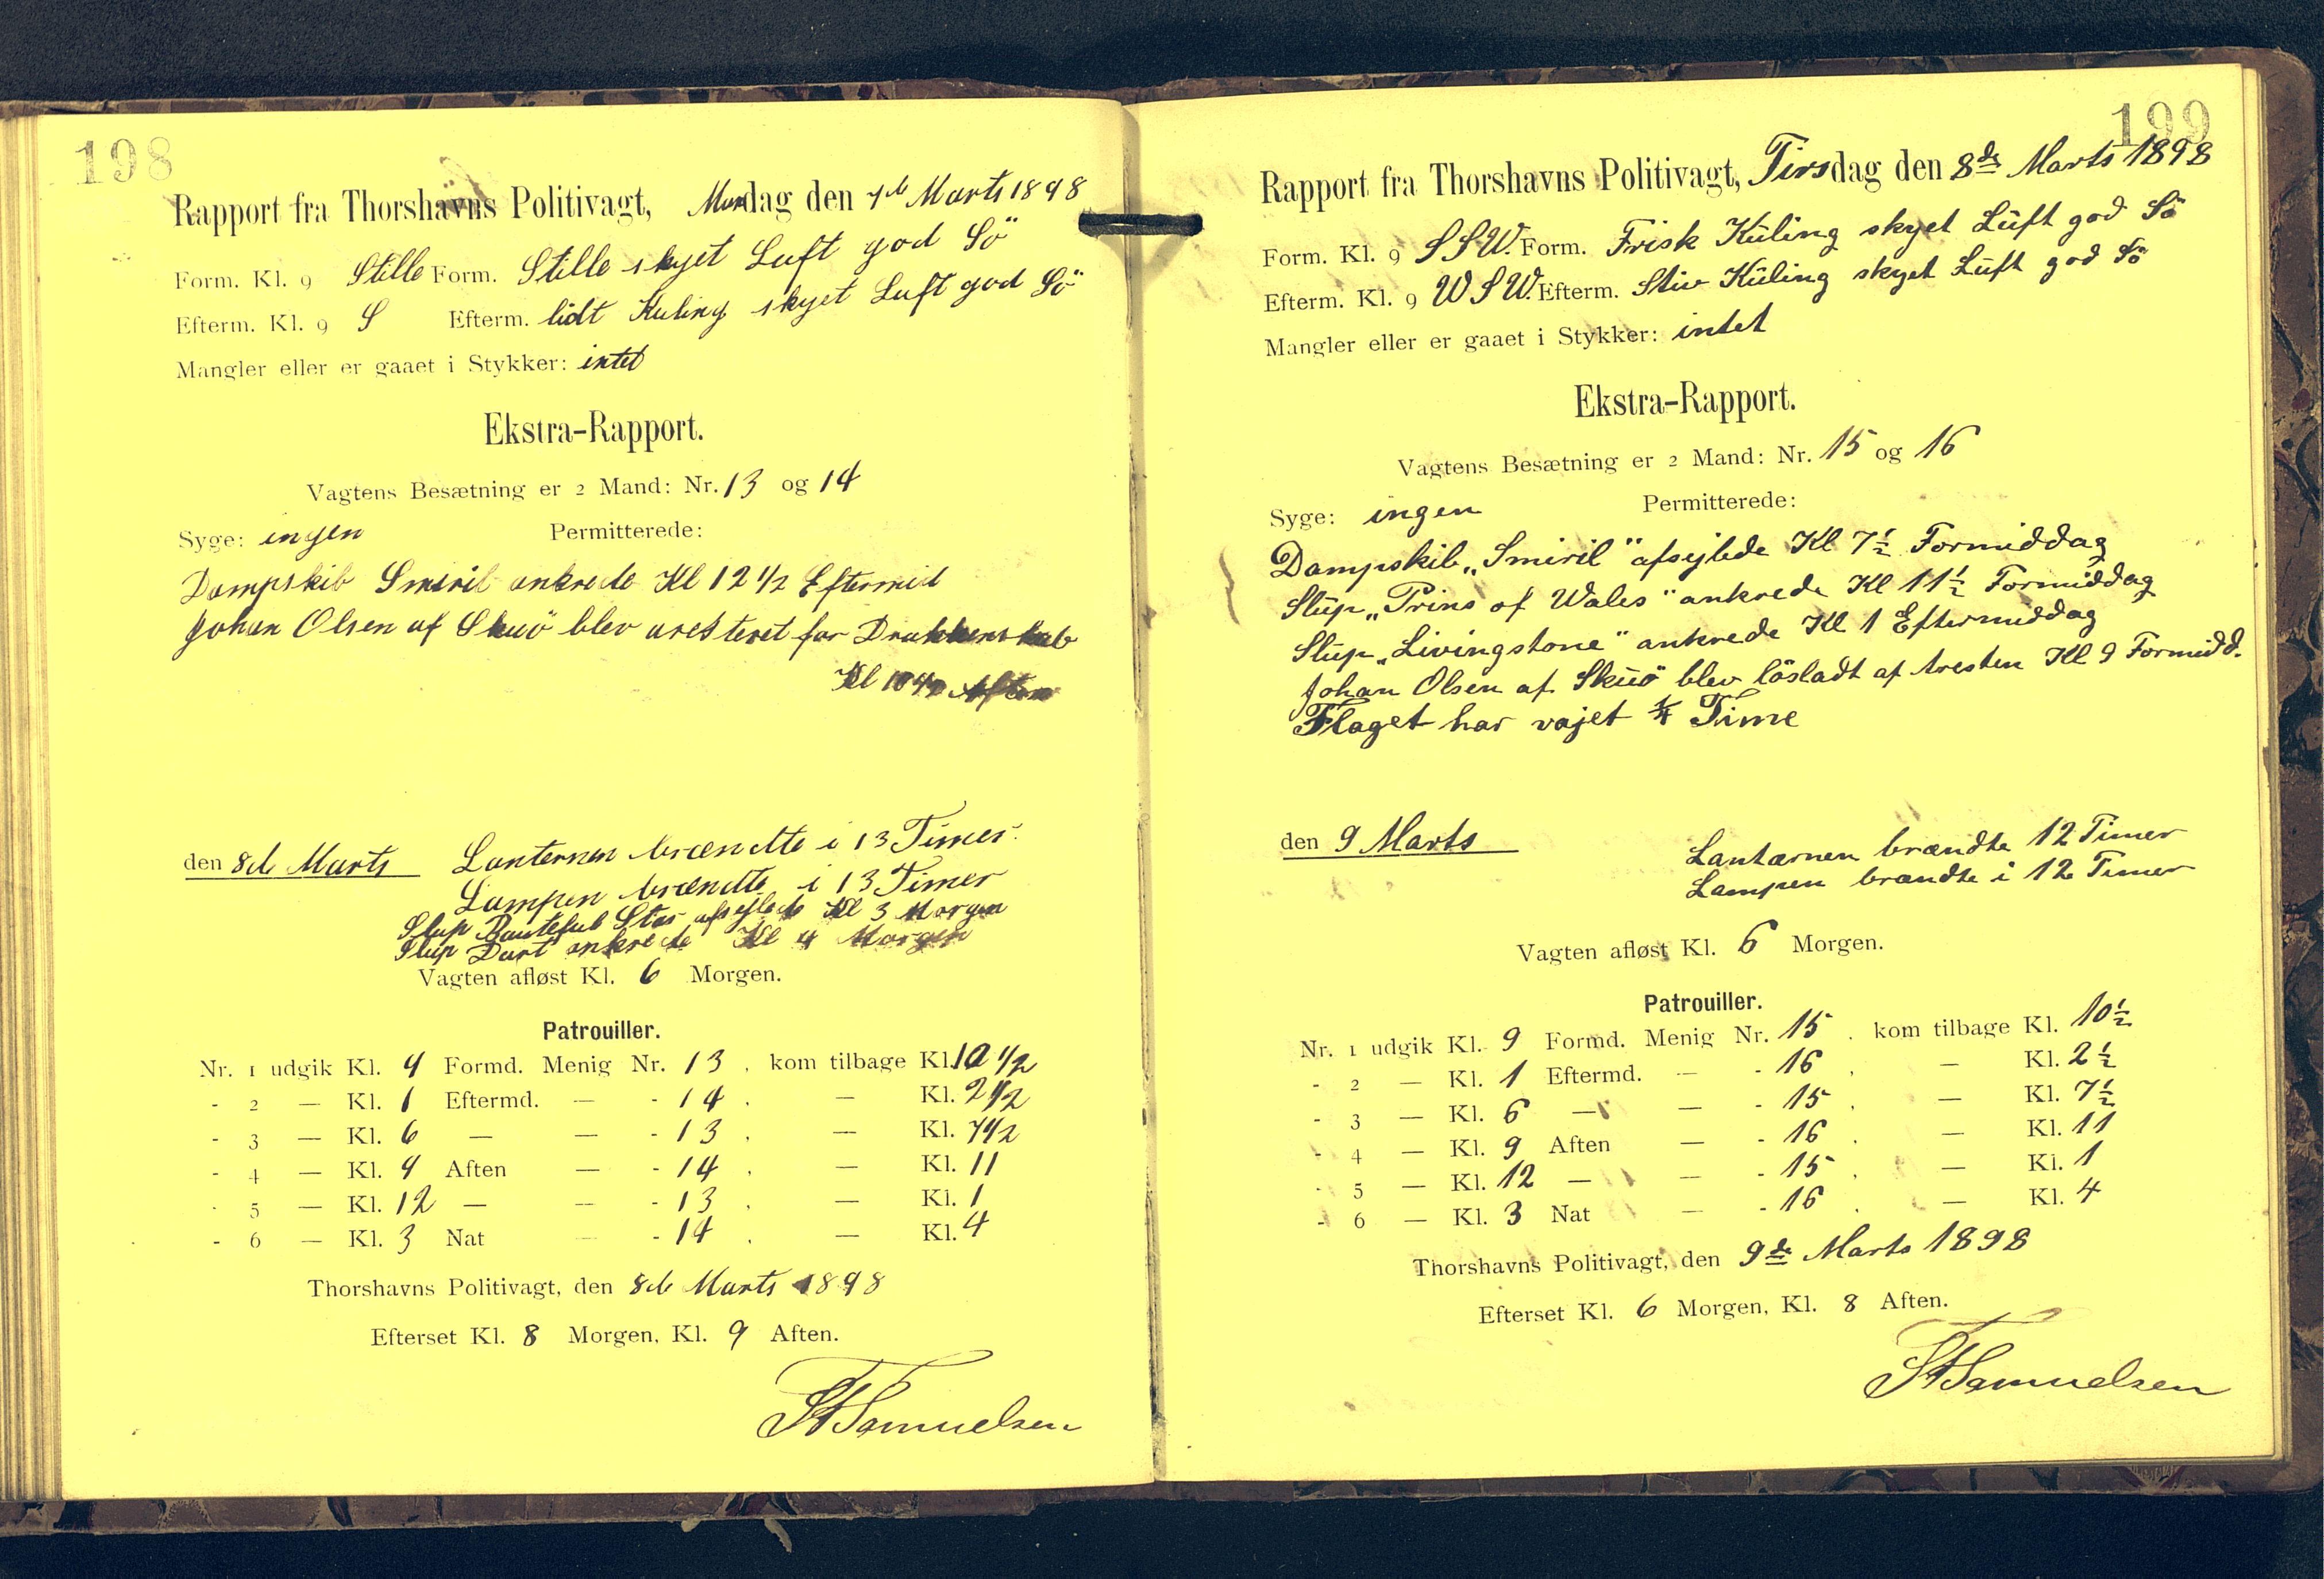 198
Rapport fra Thorshavns Politivagt, Mandag den 7de Marts 1898
Form. Kl. 9 Stille Form. Stille skyet Luft god Sö
Efterm. Kl. 9 S Efterm. lidt Kuling skyet Luft god Sö
Mangler eller er gaaet i Stykker: intet
Ekstra-Rapport.
Vagtens Besætning er 2 Mand: Nr. 13 og 14
Syge: ingen Permitterede:
Dampskib Smiril ankrede Kl 12 1/2 Eftermid
Johan Olsen af Skuö blev aresteret for Drukkenskab
Kl Aften
den 8de Marts Lanternen brændte i 13 Timer.
Lampen brændte i 13 Timer
Slup afsejlede Kl 3 Morgen
Slup Dart ankrede Kl 4 Morgen
Vagten afløst Kl. 6 Morgen.
Patrouiller.
Nr. 1 udgik Kl. 9 Formd. Menig Nr. 13 . kom tilbage Kl. 10 1/2
- 2 — Kl. 1 Eftermd. — - 14 . — Kl. 2 1/2
- 3 — Kl. 6 — — - 13 . — Kl. 7 1/2
- 4 — Kl. 9 Aften — - 14 . — Kl. 11
- 5 — Kl. 12 — — - 13 . — Kl. 1
- 6 — Kl. 3 Nat — - 14 . — Kl. 4
Thorshavns Politivagt, den 8de Marts 1898
Efterset Kl. 8 Morgen, Kl. 9 Aften.
Samuelsen
199
Rapport fra Thorshavns Politivagt, Tirsdag den 8de Marts 1898
Form. Kl. 9 SSW. Form. Frisk Küling skyet Lüft god Sö
Efterm. Kl. 9 WSW. Efterm. Stiv Küling skyet Lüft god Sö
Mangler eller er gaaet i Stykker: intet
Ekstra-Rapport.
Vagtens Besætning er 2 Mand: Nr. 15 og 16
Syge: ingen Permitterede:
Dampskib „Smiril" afsejlede Kl 7 1/2 Formiddag
Slüp „Prins of Wales" ankrede Kl 11 1/2 Formiddag
Slüp „Livingstone" ankrede Kl 1 Eftermiddag
Johan Olsen af Sküö blev lösladt af Aresten Kl 9 Formidd.
Flaget har vajet 1/4 Time
den 9 Marts Lantærnen brændte 12 Timer
Lampen brændte i 12 Timer
Vagten afløst Kl. 6 Morgen.
Patrouiller.
Nr. 1 udgik Kl. 9 Formd. Menig Nr. 15 . kom tilbage Kl. 10 1/2
- 2 — Kl. 1 Eftermd. — - 16 . — Kl. 2 1/2
- 3 — Kl. 6 — — - 15 . — Kl. 7 1/2
- 4 — Kl. 9 Aften — - 16 . — Kl. 11
- 5 — Kl. 12 — — - 15 . — Kl. 1
- 6 — Kl. 3 Nat — - 16 . — Kl. 4
Thorshavns Politivagt, den 9de Marts 1898
Efterset Kl. 6 Morgen, Kl. 8 Aften.
Samuelsen